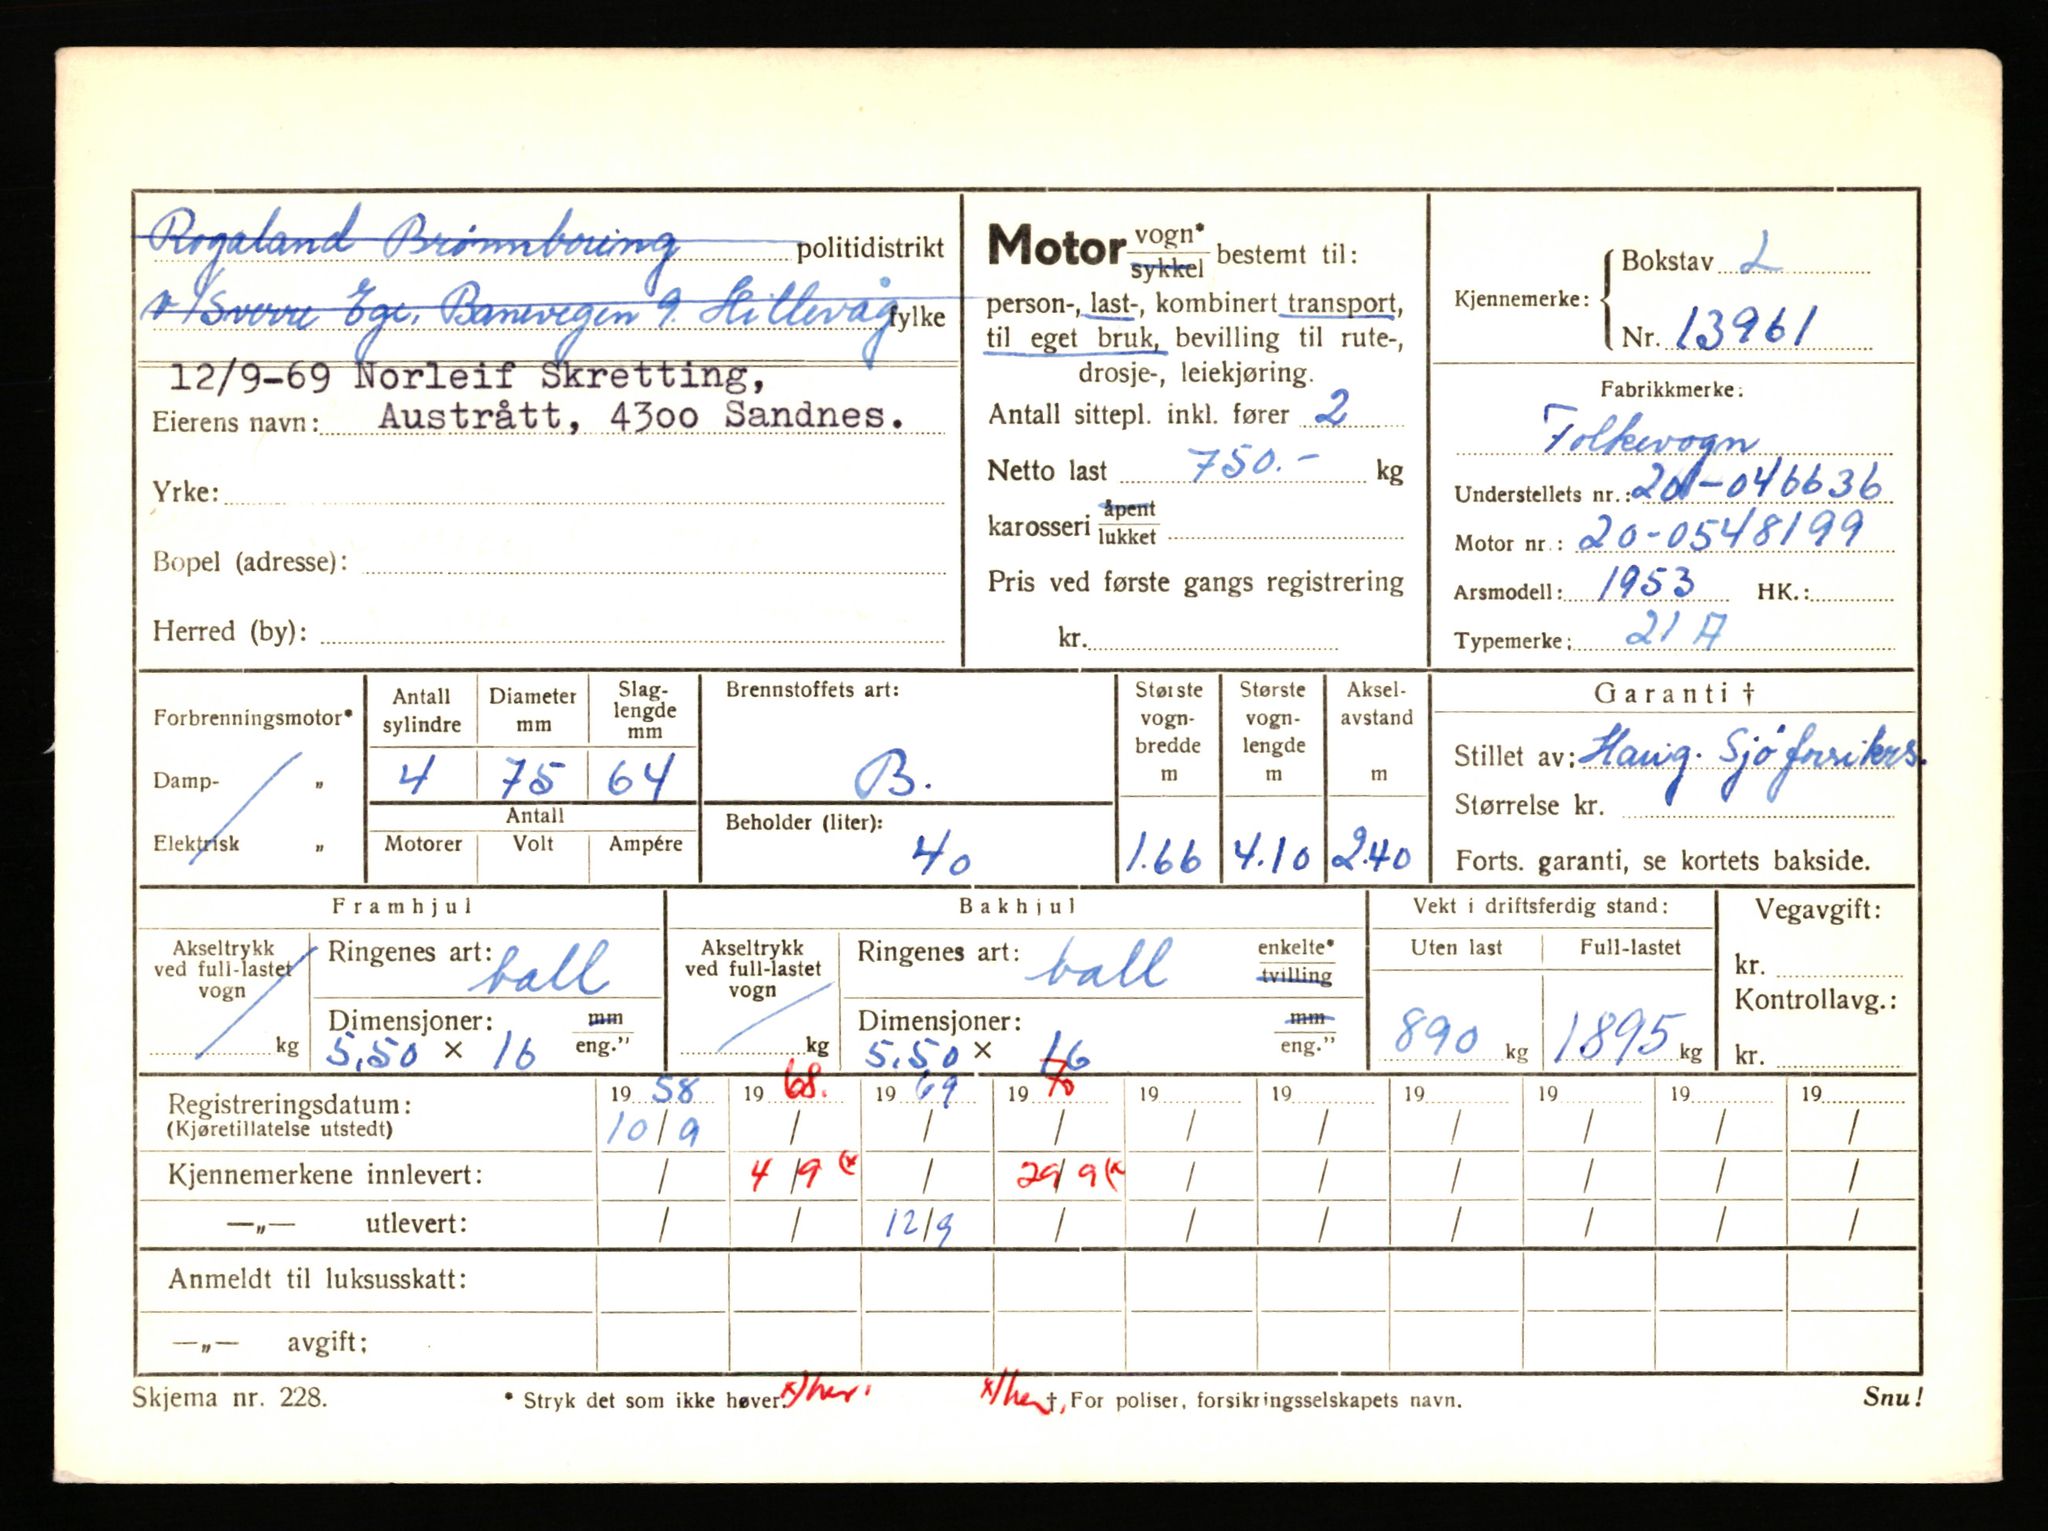 Rogaland Brønnboring politidistrikt
v/Sverre Ege, Banevegen 9. Hillevåg fylke
12/9-69 Norleif Skretting,
Eierens navn: Austrått, 4300 Sandnes.
Yrke:
Bopel (adresse):
Herred (by):
Motor vogn* sykkel bestemt til:
person-, last-, kombinert transport,
til eget bruk, bevilling til rute-,
drosje-, leiekjøring.
Antall sittepl. inkl. fører 2
Netto last 750.- kg
karosseri åpent lukket
Pris ved første gangs registrering
kr.
Kjennemerke: Bokstav L
Nr. 13961
Fabrikkmerke:
Folkevogn
Understellets nr.: 20-046636
Motor nr.: 20-0548199
Arsmodell: 1953 HK.:
Typemerke: 21 A
Forbrenningsmotor*
Damp- „
Elektrisk „
Antall sylindre
4
Diameter mm
75
Slag-
lengde
mm
64
Antall
Motorer Volt Ampére
Brennstoffets art:
B.
Beholder (liter):
40
Største
vogn-
bredde
m
1.66
Største
vogn-
lengde
m
4.10
Aksel-
avstand
m
2.40
Garanti †
Stillet av: Haug. Sjøforsikrs.
Størrelse kr.
Forts. garanti, se kortets bakside.
Framhjul
Akseltrykk
ved full-lastet
vogn
kg
Ringenes art: ball
Dimensjoner: mm
5,50 x 16 eng."
Bakhjul
Akseltrykk
ved full-lastet
vogn
kg
Ringenes art: ball enkelte* tvilling
Dimensjoner: mm
5,50 x 16 eng."
Vekt i driftsferdig stand:
Uten last Full-lastet
890 kg 1895 kg
Vegavgift:
kr.
Kontrollavg.:
kr.
Registreringsdatum: 19 58 19 68. 19 69 19 70 19 19 19 19 19 19
(Kjøretillatelse utstedt) 10/9 / / / / / / / / /
Kjennemerkene innlevert: / 4/9 (x / 29/9 (x / / / / / /
—„— utlevert: / / 12/9 / / / / / / /
Anmeldt til luksusskatt:
—„— avgift:
Skjema nr. 228. * Stryk det som ikke høver. x/her. x/her. †, For poliser, forsikringsselskapets navn. Snu!